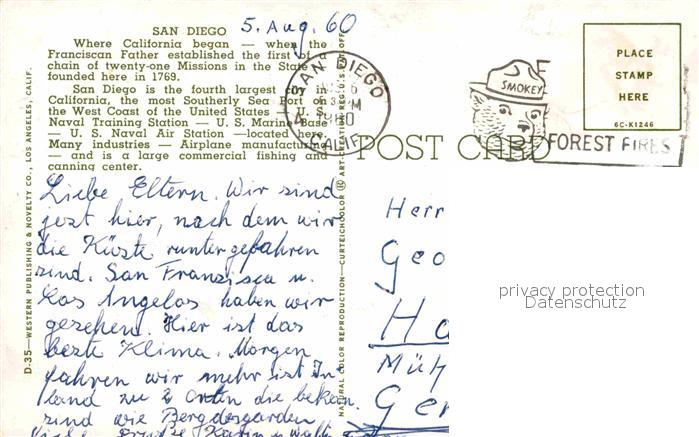 SAN DIEGO
5. Aug. 60
Where California began — when the
Franciscan Father established the first of a
chain of twenty-one Missions in the State
founded here in 1769.
San Diego is the fourth largest city in
California, the most Southerly Sea Port on
the West Coast of the United States — U. S.
Naval Training Station — U. S. Marine Base
— U. S. Naval Air Station — located here.
Many industries — Airplane manufacturing
— and is a large commercial fishing and
canning center.
D-35—WESTERN PUBLISHING & NOVELTY CO., LOS ANGELES, CALIF.
NATURAL COLOR REPRODUCTION—CURTEICHCOLOR ® ART-CREATION REG. U.S. PAT. OFF.
SAN DIEGO
PM
1960
CALIF.
SMOKEY
FOREST FIRES
POST CARD
PLACE
STAMP
HERE
6C-K1246
Liebe Eltern. Wir sind
jezt hier, nach dem wir
die Küste runtergefahren
sind. San Franzisca u.
Los Angelos haben wir
gesehen. Hier ist das
beste Klima. Morgen
fahren wir mehr ist In-
land zu 2 Orten die bekan.
sind wie Bergdesgarden
Viele Grüße Karin u. Walt
Herr
Geo
Ha
Müh
Ger
privacy protection
Datenschutz